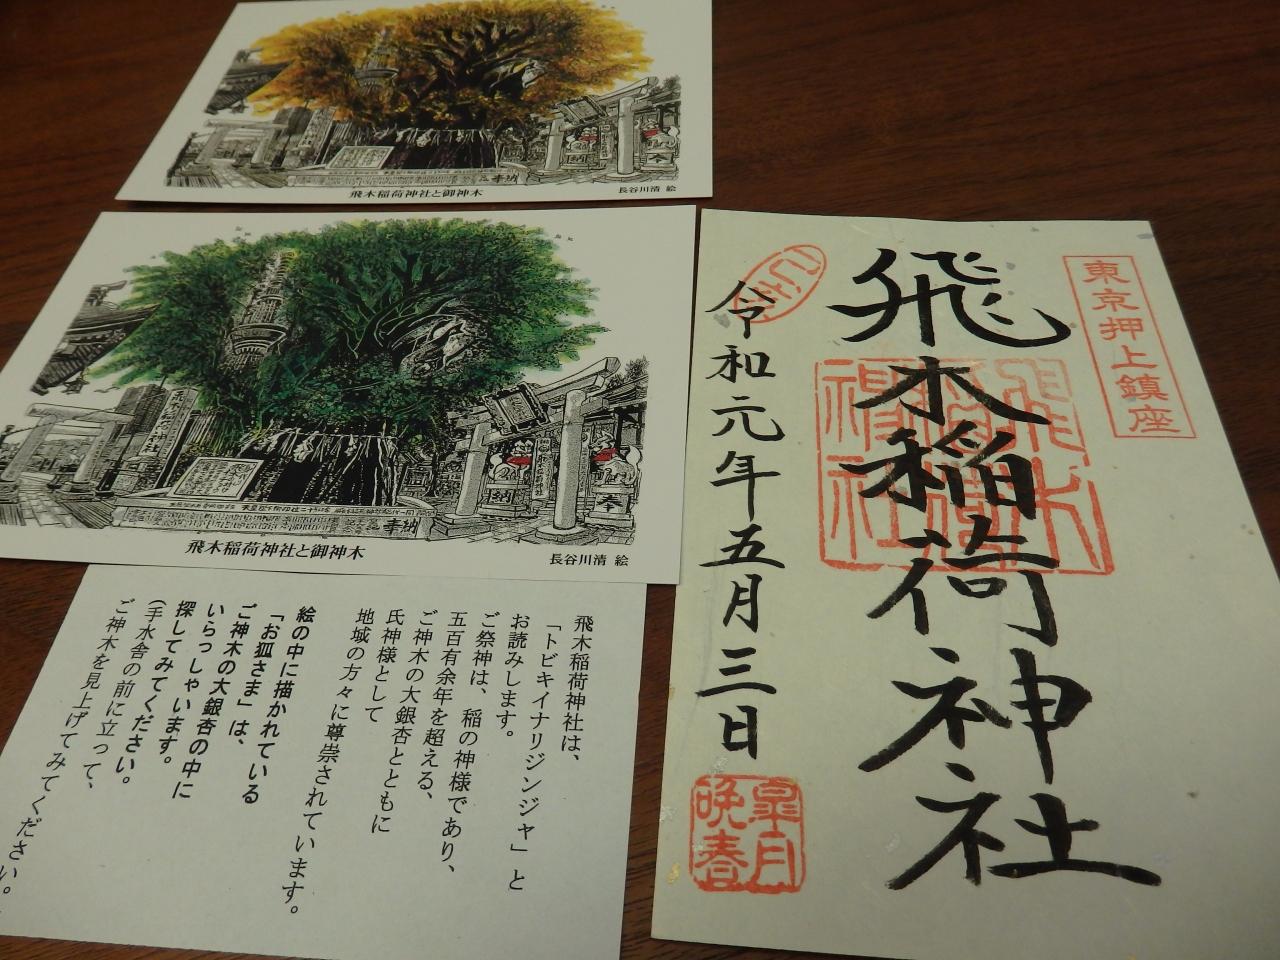 飛木稲荷神社と御神木
長谷川清 絵
奉納
奉
飛木稲荷神社と御神木
長谷川清 絵
奉納
納
奉
東京押上鎮座
飛木稲荷神社
飛木稲荷神社
令和元年五月三日
皐月
晩春
飛木稲荷神社は、
「トビキイナリジンジャ」と
お読みします。
ご祭神は、稲の神様であり、
五百有余年を超える、
ご神木の大銀杏とともに
氏神様として
地域の方々に尊崇されています。
絵の中に描かれている
「お狐さま」は、
ご神木の大銀杏の中に
いらっしゃいます。
探してみてください。
(手水舎の前に立って、
ご神木を見上げてみてください。